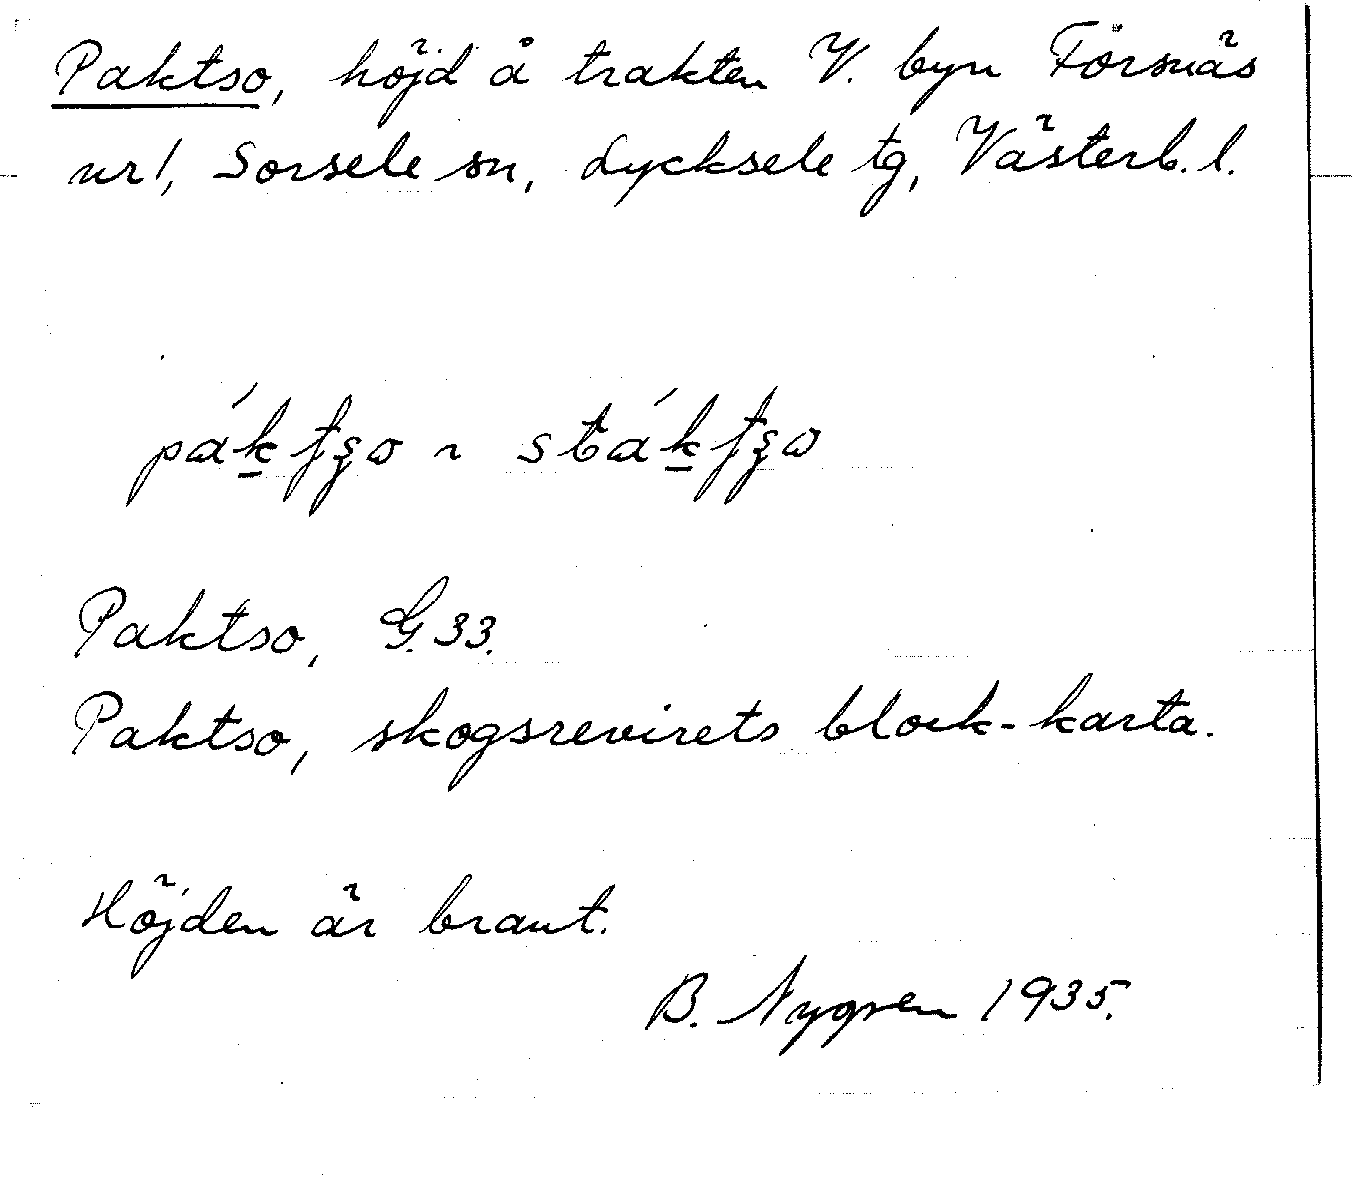 Paktso, höjd å trakten V. byn Förnäs
nr 1, Sorsele sn, Lycksele tg, Västerb. l.
Paktso, G. 33.
Paktso, skogsrevirets block-karta.
Höjden är brant.
B. Nygren 1935.